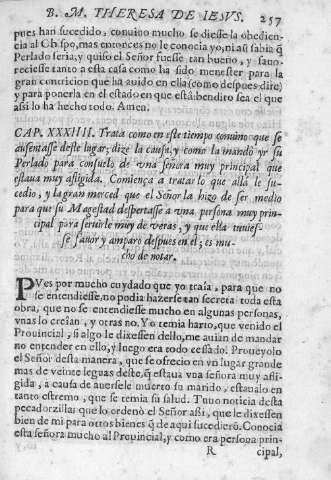 B. M. THERESA DE IESVS. 257
pues han sucedido, conuino mucho se diesse la obedien-
cia al Obispo, mas entonces no le conocia yo, ni aũ sabia q̃
Perlado seria, y quiso el Señor fuesse tan bueno, y fauo-
reciesse tanto a esta casa como ha sido menester para la
gran contricion que ha auido en ella (como despues dire)
y para ponerla en el estado en que està: bendito sea el que
assi lo ha hecho todo. Amen.
CAP. XXXIIII. Trata como en este tiempo conuino que se
ausentasse deste lugar; dize la causa, y como la mandò yr su
Perlado para consuelo de vna señora muy principal que
estaua muy afligida. Comiença a tratar lo que allà le su-
cedio, y la gran merced que el Señor la hizo de ser medio
para que su Magestad despertasse a vna persona muy prin-
cipal para seruirle muy de veras, y que ella tuuies-
se fauor y amparo despues en el; es mu-
cho de notar.
PVes por mucho cuydado que yo traìa, para que no
se entendiesse, no podia hazerse tan secreta toda esta
obra, que no se entendiesse mucho en algunas personas,
vnas lo creìan, y otras no. Yo temia harto, que venido el
Prouincial, si algo le dixessen dello, me auian de mandar
no entender en ello, y luego era todo cessado. Proueyolo
el Señor desta manera, que se ofrecio en vn lugar grande
mas de veinte leguas deste, q̃ estaua vna señora muy afli-
gida, a causa de auersele muerto su marido, estaualo en
tanto estremo, que se temia su salud. Tuuo noticia desta
pecadorzilla, que lo ordenò el Señor assi, que le dixessen
bien de mi para otros bienes q̃ de aqui sucedierõ. Conocia
esta señora mucho al Prouincial, y como era persona prin-
R cipal,